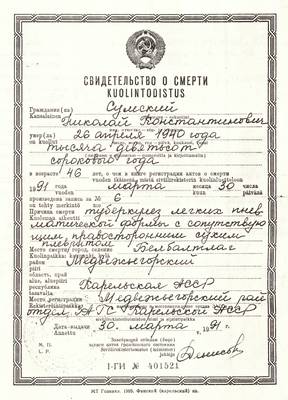 СВИДЕТЕЛЬСТВО О СМЕРТИ
KUOLINTODISTUS
Гражданин (ка) Сумский
Kansalainen Николай Константинович
умер (ла) 26 апреля 1940 года
on kuollut
тысяча девятьсот
сорокового года
в возрасте 46 лет, о чем в книге регистрации актов о смерти
1991 года марта месяца 30 числа
произведена запись за № 6
on tehty merkintö
Причина смерти туберкулез легких пнев-
матической формы с сопутствую-
щим правосторонним сухим
плевритом
Место смерти: город, селение Белбалтлаг
район Медвежьегорский
область, край
республика Карельская АССР
Место регистрации Медвежьегорский рай-
отдел ЗАГС Карельской АССР
Дата выдачи 30. марта 1991 г.
Annettu
М. П.
L. P.
Заведующий отделом (бюро)
записи актов гражданского состояния
I-ГИ № 401521